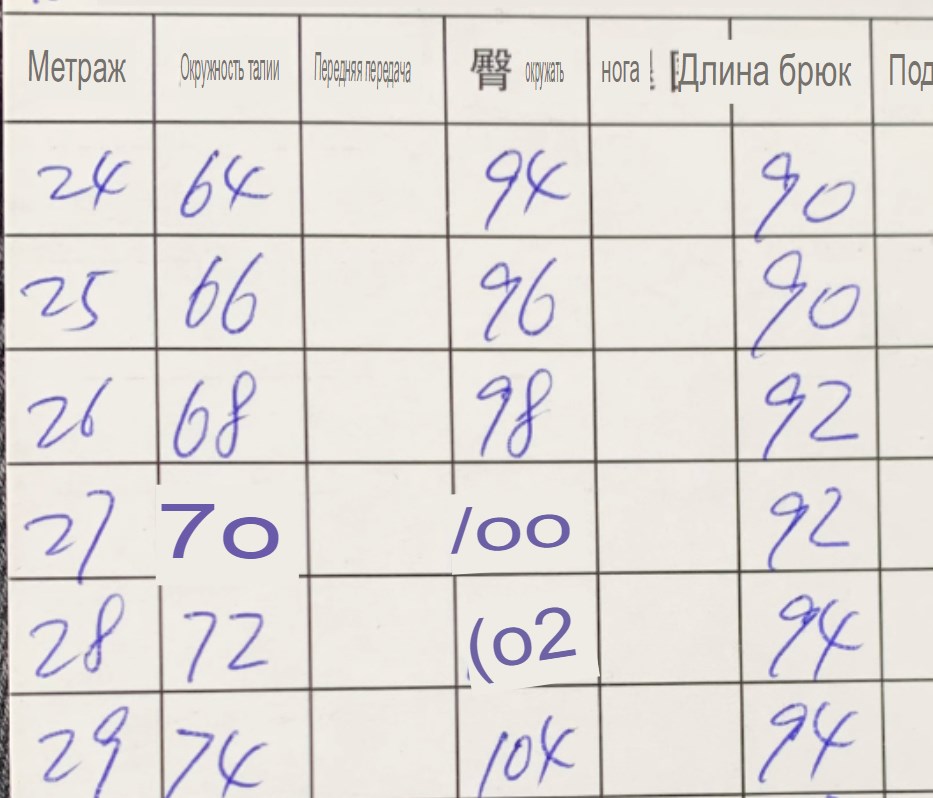 Метраж Окружность талии Передняя передача 臀 окружать нога Длина брюк Под
24 64 94 90
25 66 96 90
26 68 98 92
27 7o /oo 92
28 72 (o2 94
29 74 104 94